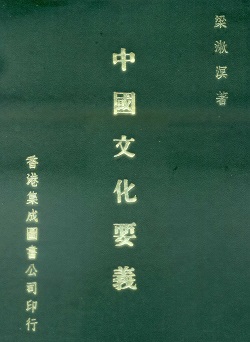 梁漱溟著
中國文化要義
香港集成圖書公司印行